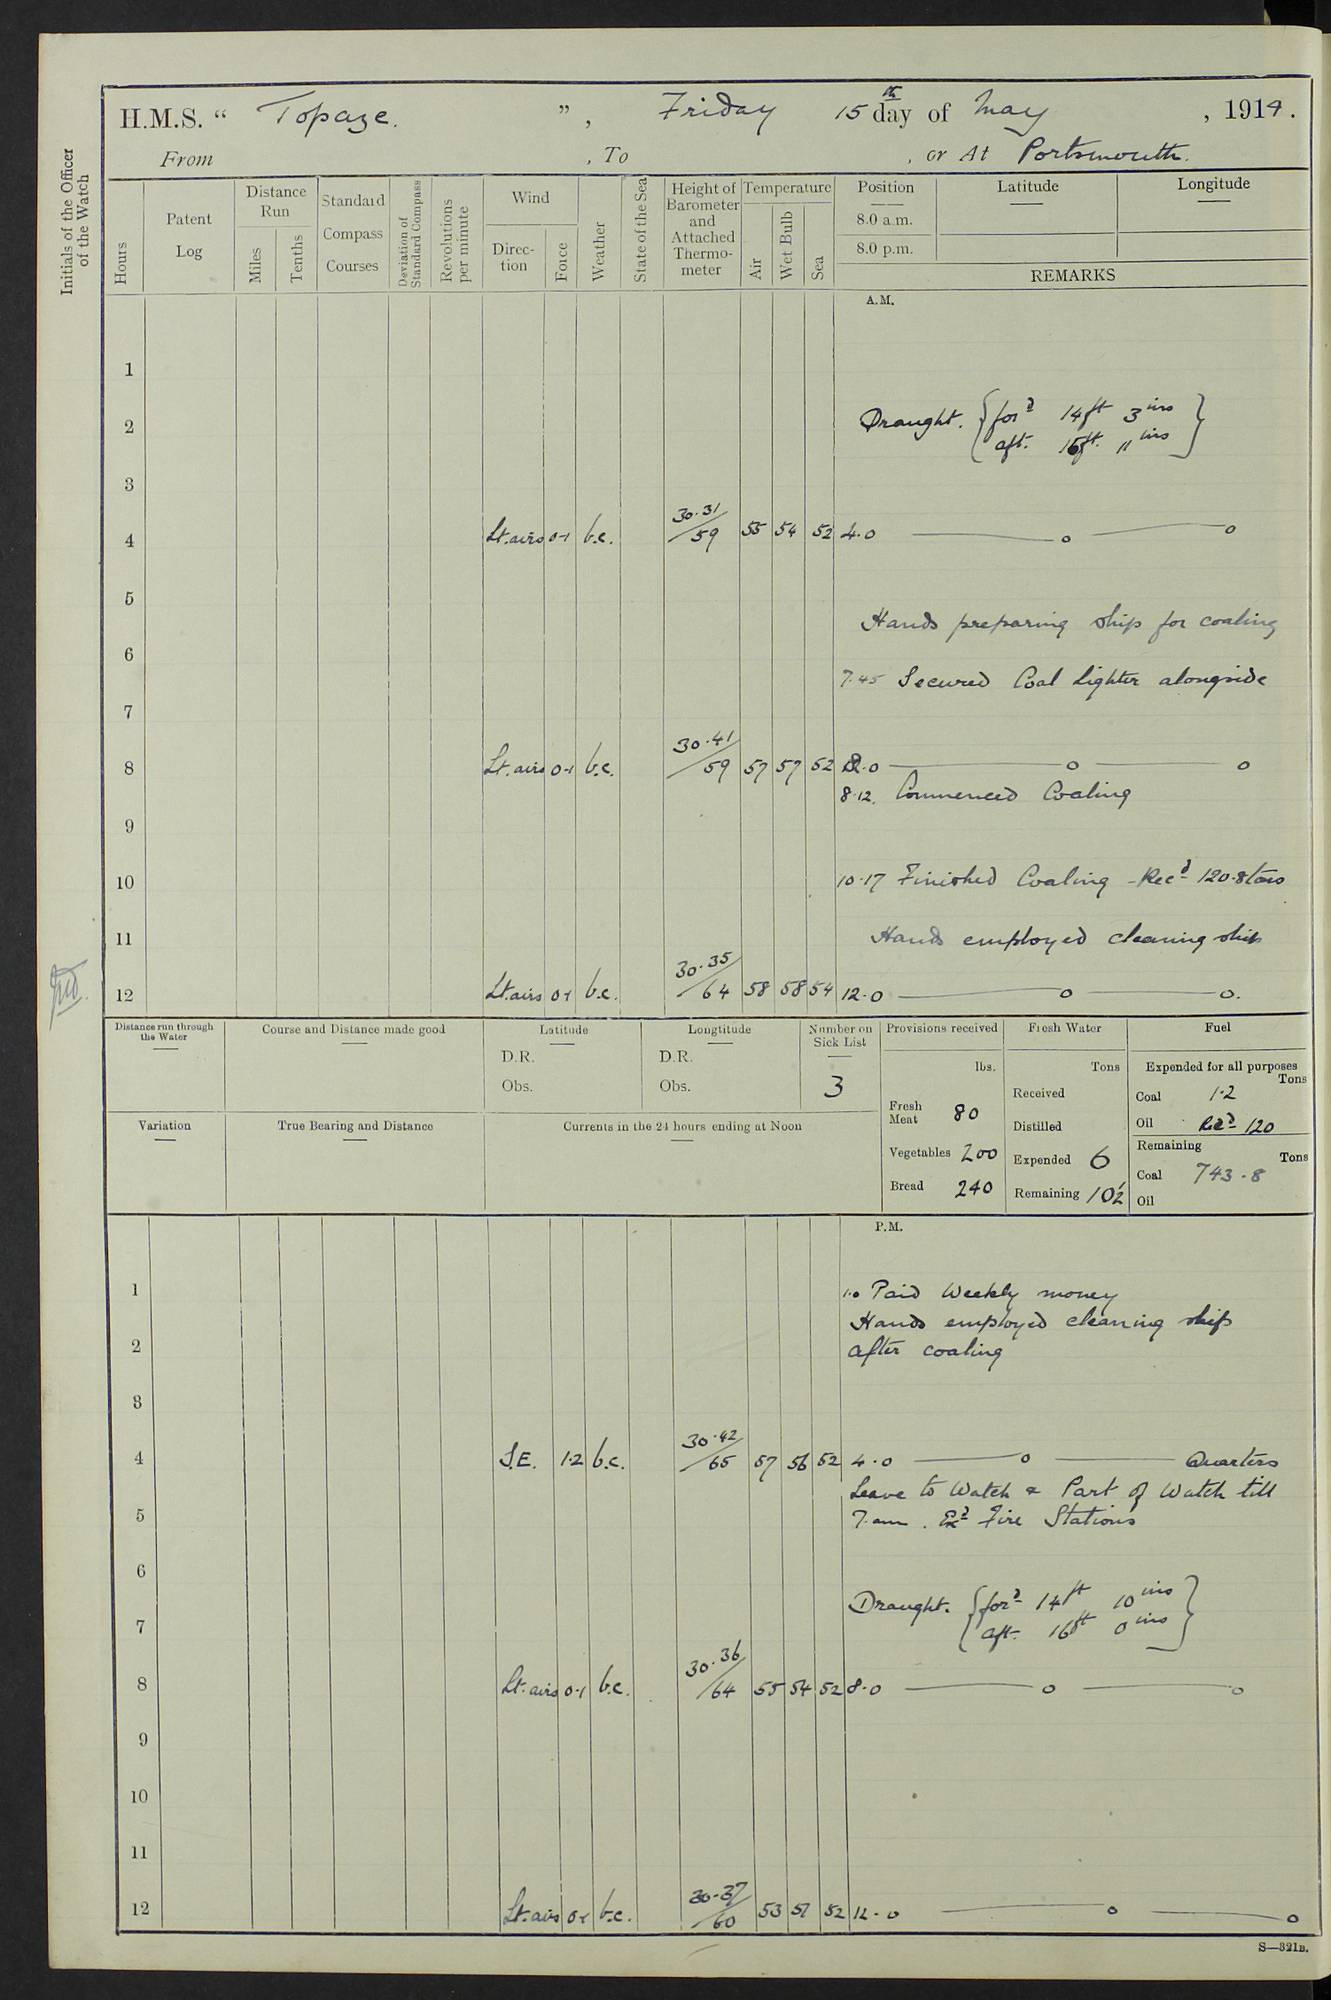 H.M.S. “ Topaze. ”, Friday 15th day of May, 1914.
From , To , or At Portsmouth.
Initials of the Officer
of the Watch
Hours
Patent
Log
Distance
Run
Miles
Tenths
Standard
Compass
Courses
Deviation of
Standard Compass
Revolutions
per minute
Wind
Direc-
tion
Force
Weather
State of the Sea
Height of
Barometer
and
Attached
Thermo-
meter
Temperature
Air
Wet Bulb
Sea
Position
8.0 a.m.
8.0 p.m.
Latitude
Longitude
REMARKS
A.M.
1
2 Draught. {for'd 14ft 3ins
aft. 15ft. 11ins}
3
4 Lt. airs 0-1 b.c. 30.31/59 55 54 52 4.0
5
Hands preparing ship for coaling
6
7.45 Secured Coal Lighter alongside
7
8 Lt. airs 0-1 b.c. 30.41/59 57 57 52 8.0
8.12. Commenced Coaling
9
10 10.17 Finished Coaling - Rec'd 120.8 tons
11 Hands employed cleaning ship
12 Lt. airs 0-1 b.c. 30.35/64 58 58 54 12.0
Distance run through
the Water
Course and Distance made good
Latitude
D.R.
Obs.
Longtitude
D.R.
Obs.
Number on
Sick List
3
Variation
True Bearing and Distance
Currents in the 24 hours ending at Noon
Provisions received
lbs.
Fresh
Meat 80
Vegetables 200
Bread 240
Fresh Water
Tons
Received
Distilled
Expended 6
Remaining 102
Fuel
Expended for all purposes
Tons
Coal 1.2
Oil Rec'd 120
Remaining
Tons
Coal 743.8
Oil
P.M.
1 1.0 Paid Weekly money
Hands employed cleaning ship
2 after coaling
3
4 S.E. 1-2 b.c. 30.42/65 57 56 52 4.0 Quarters
Leave to Watch & Part of Watch till
5 7. am. Ex'd Fire Stations
6
Draught. {for'd 14ft 10ins
7 aft. 16ft 0ins}
8 Lt. airs 0-1 b.c. 30.36/64 55 54 52 8.0
9
10
11
12 Lt. airs 0-1 b.c. 30.37/60 53 51 52 12.0
S—321B.